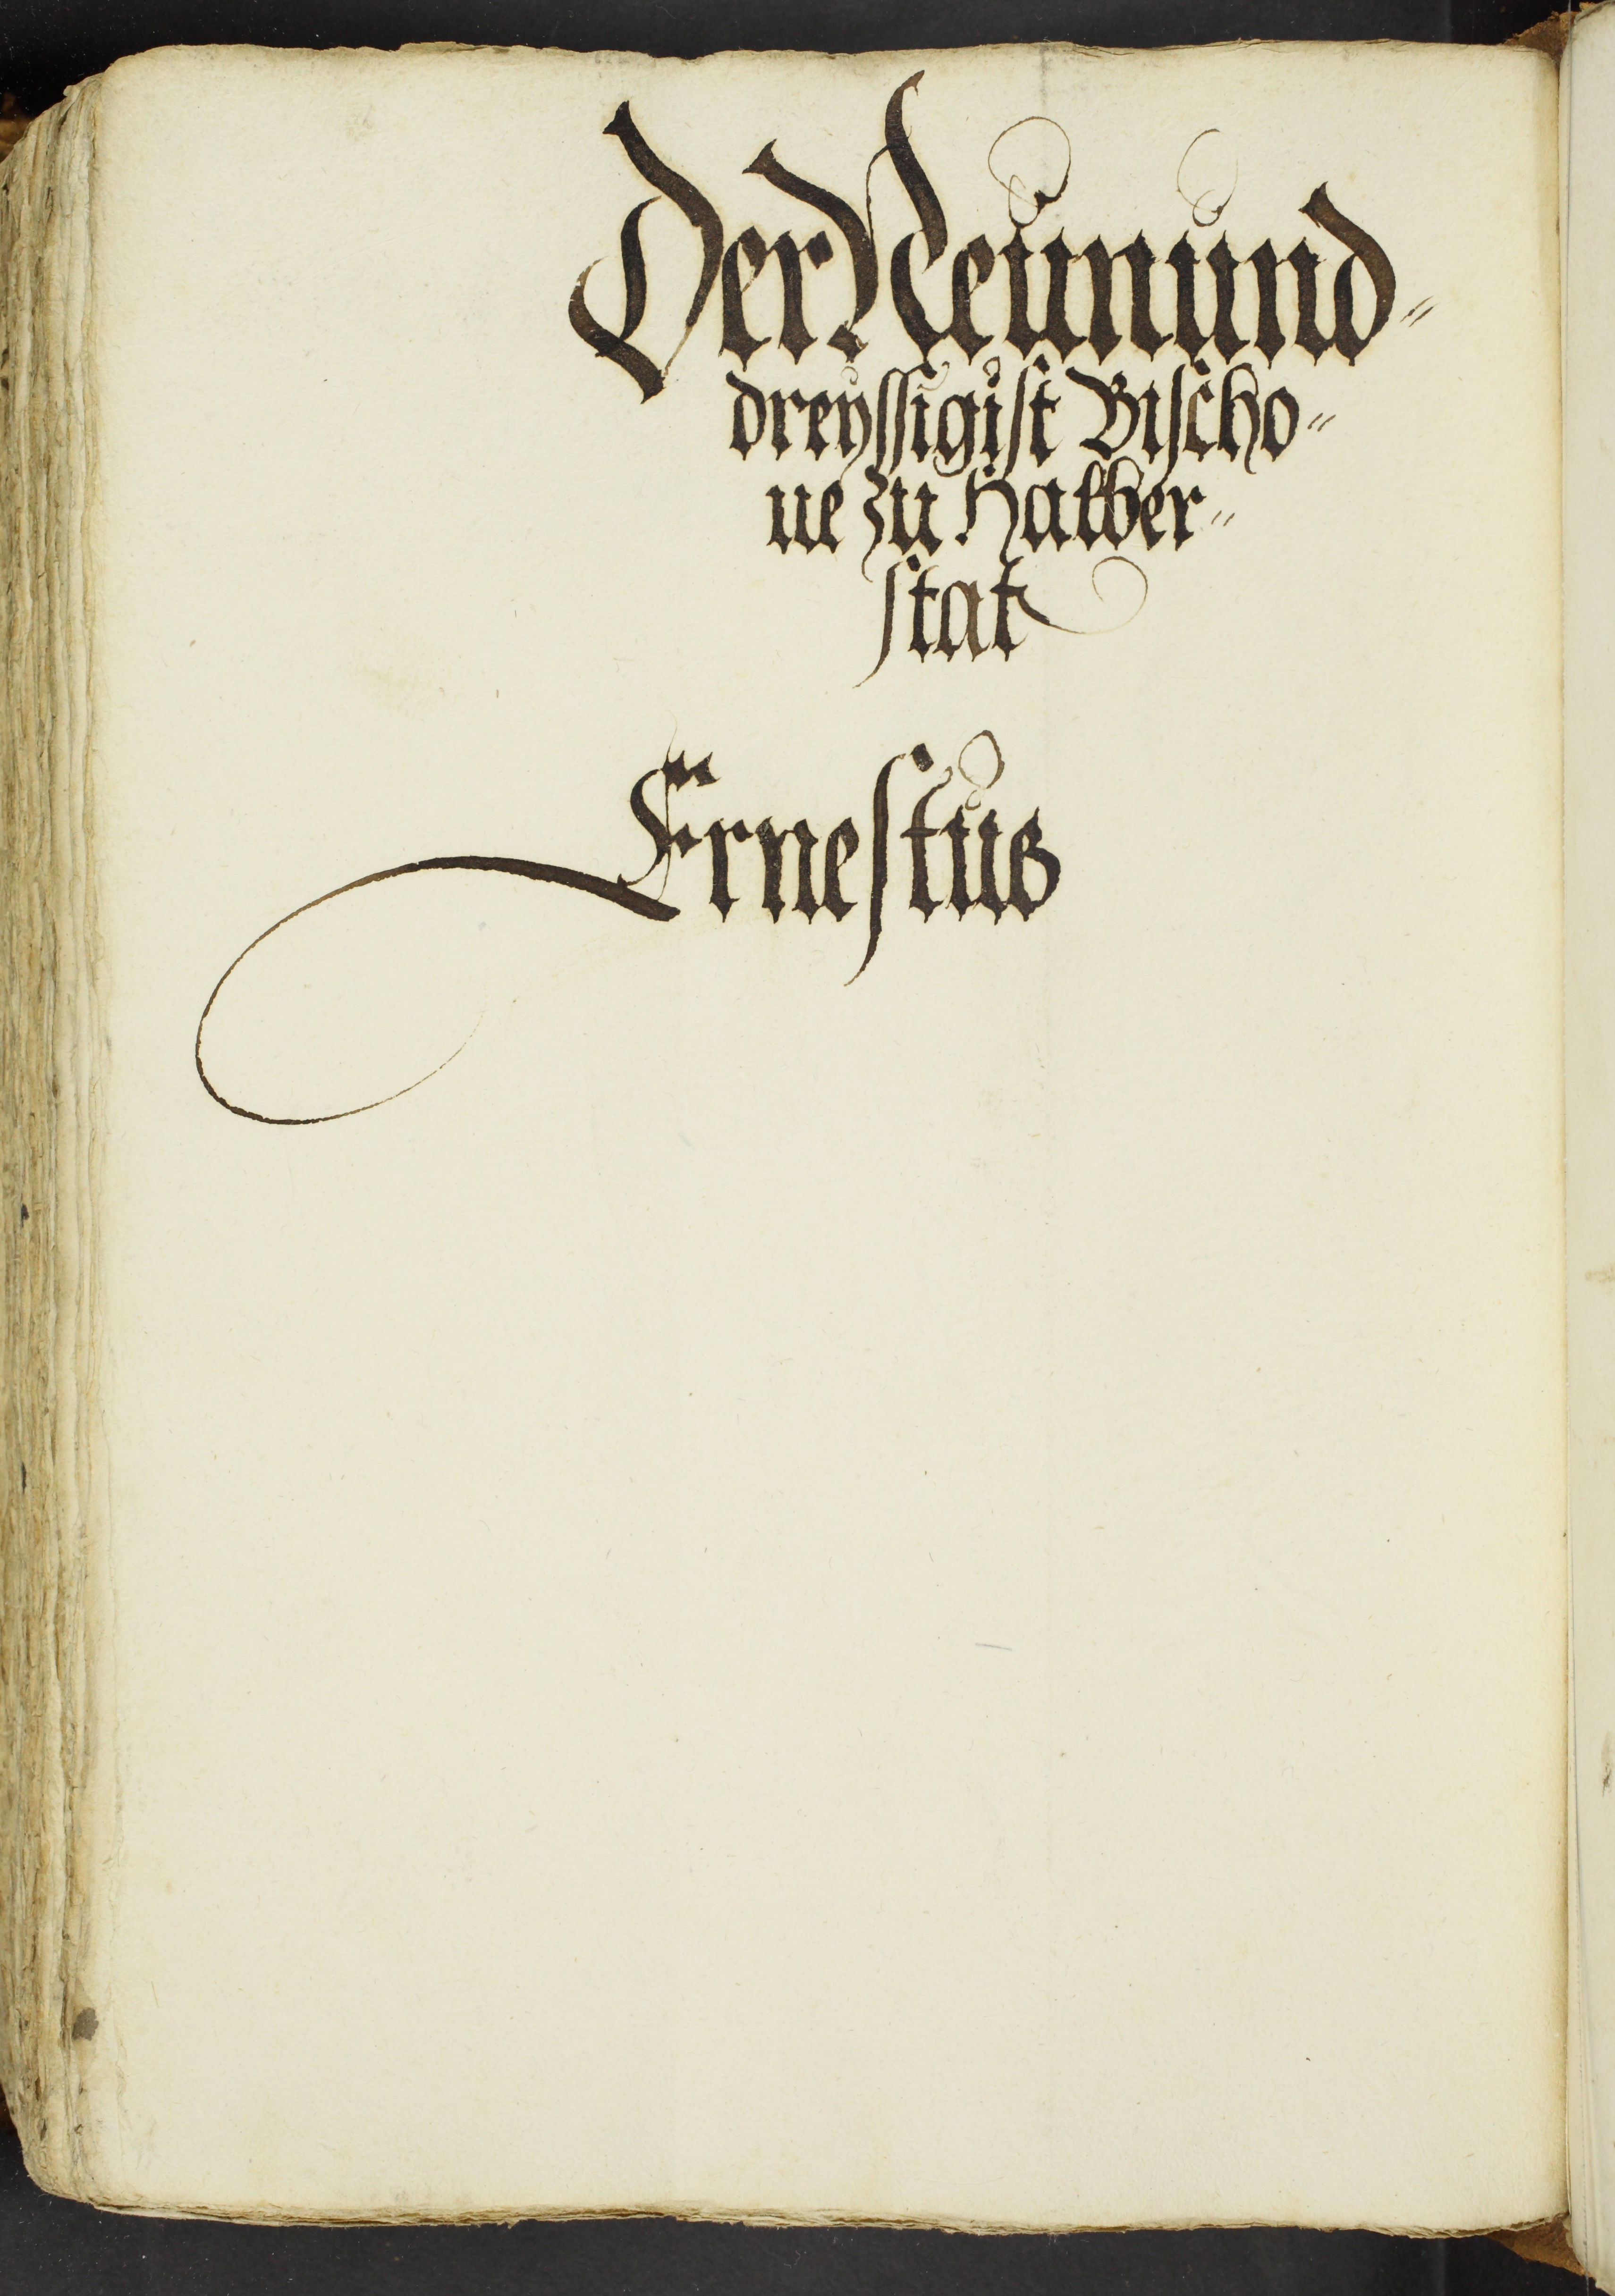 Der Neunund-
dreyssigist Bischo-
ue zu Halber-
stat
Ernestus